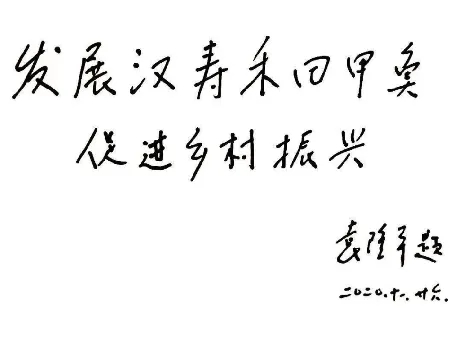 发展汉寿禾田甲鱼
促进乡村振兴
袁隆平题
2020.十一.廿六.